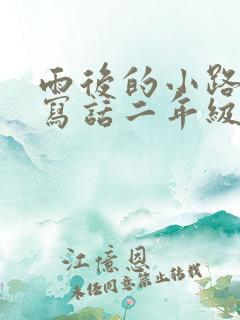 雨後的小路
寫話二年級
江億恩
未经同意禁止转载